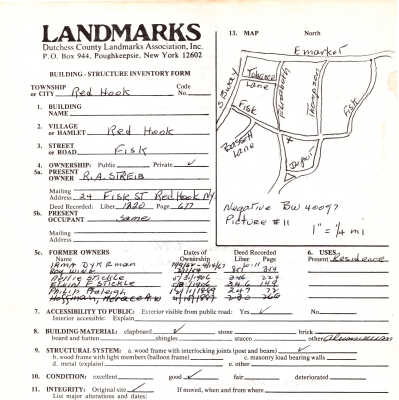 LANDMARKS
Dutchess County Landmarks Association, Inc.
P.O. Box 944, Poughkeepsie, New York 12602
BUILDING - STRUCTURE INVENTORY FORM
TOWNSHIP or CITY Red Hook Code No.
1. BUILDING NAME
2. VILLAGE or HAMLET Red Hook
3. STREET or ROAD Fisk
4. OWNERSHIP: Public Private ✓
5a. PRESENT OWNER R.A. STREIB
Mailing Address 24 Fisk ST Red Hook NY.
Deed Recorded: Liber 1220 Page 677
5b. PRESENT OCCUPANT same
Mailing Address
13. MAP North
E market
Tobacco Lane
S. Broadway
Elizabeth
Thompson
Fisk
Fisk
Bassett Lane
Negative BW 40097
Picture #11
1" = ¼ mi
5c. FORMER OWNERS Dates of Deed Recorded 6. USES:
Name Ownership Liber Page Present Residence
IRMA DYKRMAN
STICKLE
ELVIN F STICKLE
Philip Raleigh
Hoffman, Horace
7. ACCESSIBILITY TO PUBLIC: Exterior visible from public road: Yes ✓ No
Interior accessible: Explain
8. BUILDING MATERIAL: clapboard ✓ stone brick
board and batten shingles stucco other aluminum
9. STRUCTURAL SYSTEM: a. wood frame with interlocking joints (post and beam) ✓
b. wood frame with light members (balloon frame) c. masonry load bearing walls
d. metal (explain) e. other
10. CONDITION: excellent good ✓ fair deteriorated
11. INTEGRITY: Original site ✓ If moved, when and from where
List major alterations and dates: